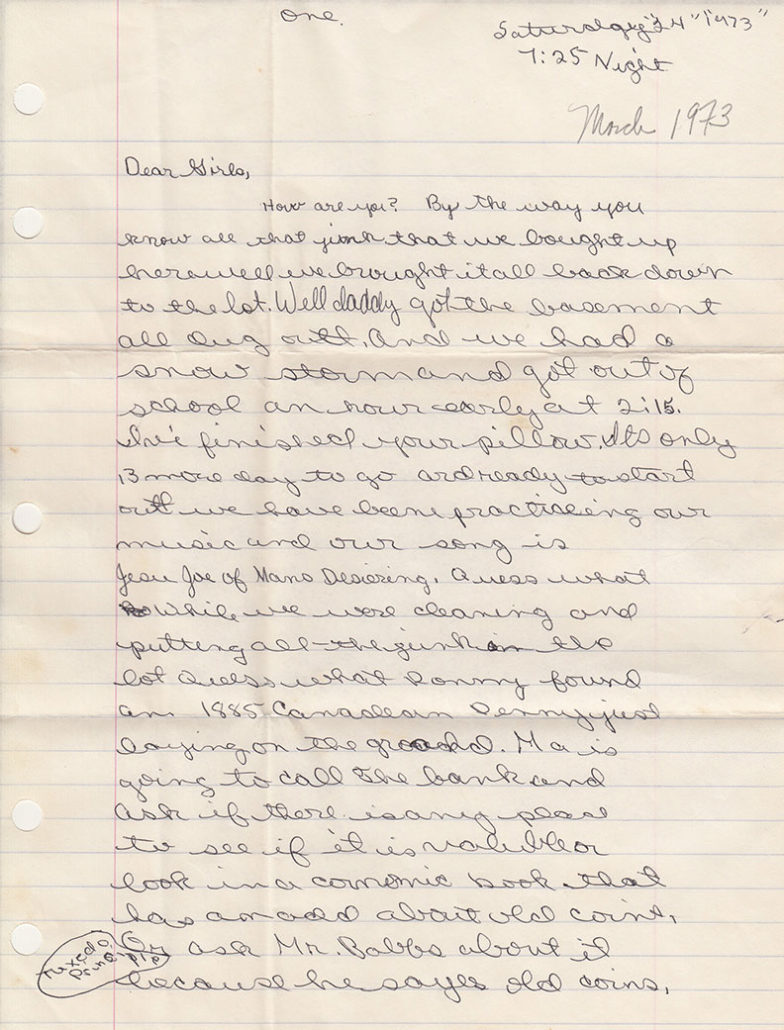 One.
Saturday "24" 1973"
7:25 Night
March 1973
Dear Girls,
How are you? By the way you
know all that junk that we bought up
here well we brought it all back down
to the lot. Well daddy got the basement
all dug outt. And we had a
snow storm and got out of
school an hour early at 2:15.
I've finished your pillow. Its only
13 more day to go and ready to start
outt we have been practiceing our
music and our song is
Jesu Joe of Mans Desiering. Guess what
while we were cleaning and
putting all the junk in the
lot Guess what Ronny found
an 1885 Canadean Penny just
laying on the ground. Ma is
going to call the bank and
ask if there is any place
to see if it is valuble or
look in a comomic book that
has an add about old coins,
Or ask Mr. Babbs about it
because he sayes old coins,
Tuxedo
Princi
ple